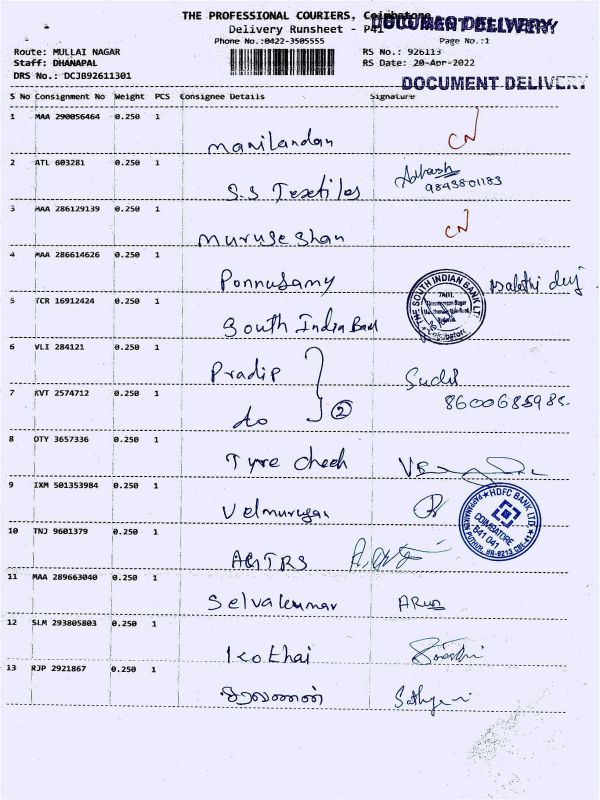 THE PROFESSIONAL COURIERS, Coimbatore
DOCUMENT DELIVERY
Delivery Runsheet - P41
Phone No.:0422-3505555
Page No.:1
Route: MULLAI NAGAR
RS No.: 926113
Staff: DHANAPAL
RS Date: 20-Apr-2022
DRS No.: DCJB92611301
DOCUMENT DELIVERY
S No Consignment No Weight PCS Consignee Details Signature
1 MAA 290056464 0.250 1
Manilandan CN
2 ATL 603281 0.250 1
S.S Textiles
9843801183
3 MAA 286129139 0.250 1
Murugeshan CN
4 MAA 286614626 0.250 1
Ponnusamy
THE SOUTH INDIAN BANK LTD
Coimbatore
5 TCR 16912424 0.250 1
South India Bank
6 VLI 284121 0.250 1
Pradip Sudil
7 KVT 2574712 0.250 1
do 2 8600685985
8 OTY 3657336 0.250 1
Tyre Check
9 IXM 501353984 0.250 1
Velmurugan
HDFC BANK LTD.
COIMBATORE
641 041
10 TNJ 9601379 0.250 1
AGTRS
11 MAA 289663040 0.250 1
Selvakumar ARUN
12 SLM 293805803 0.250 1
Kothai
13 RJP 2921867 0.250 1
சரவணன்